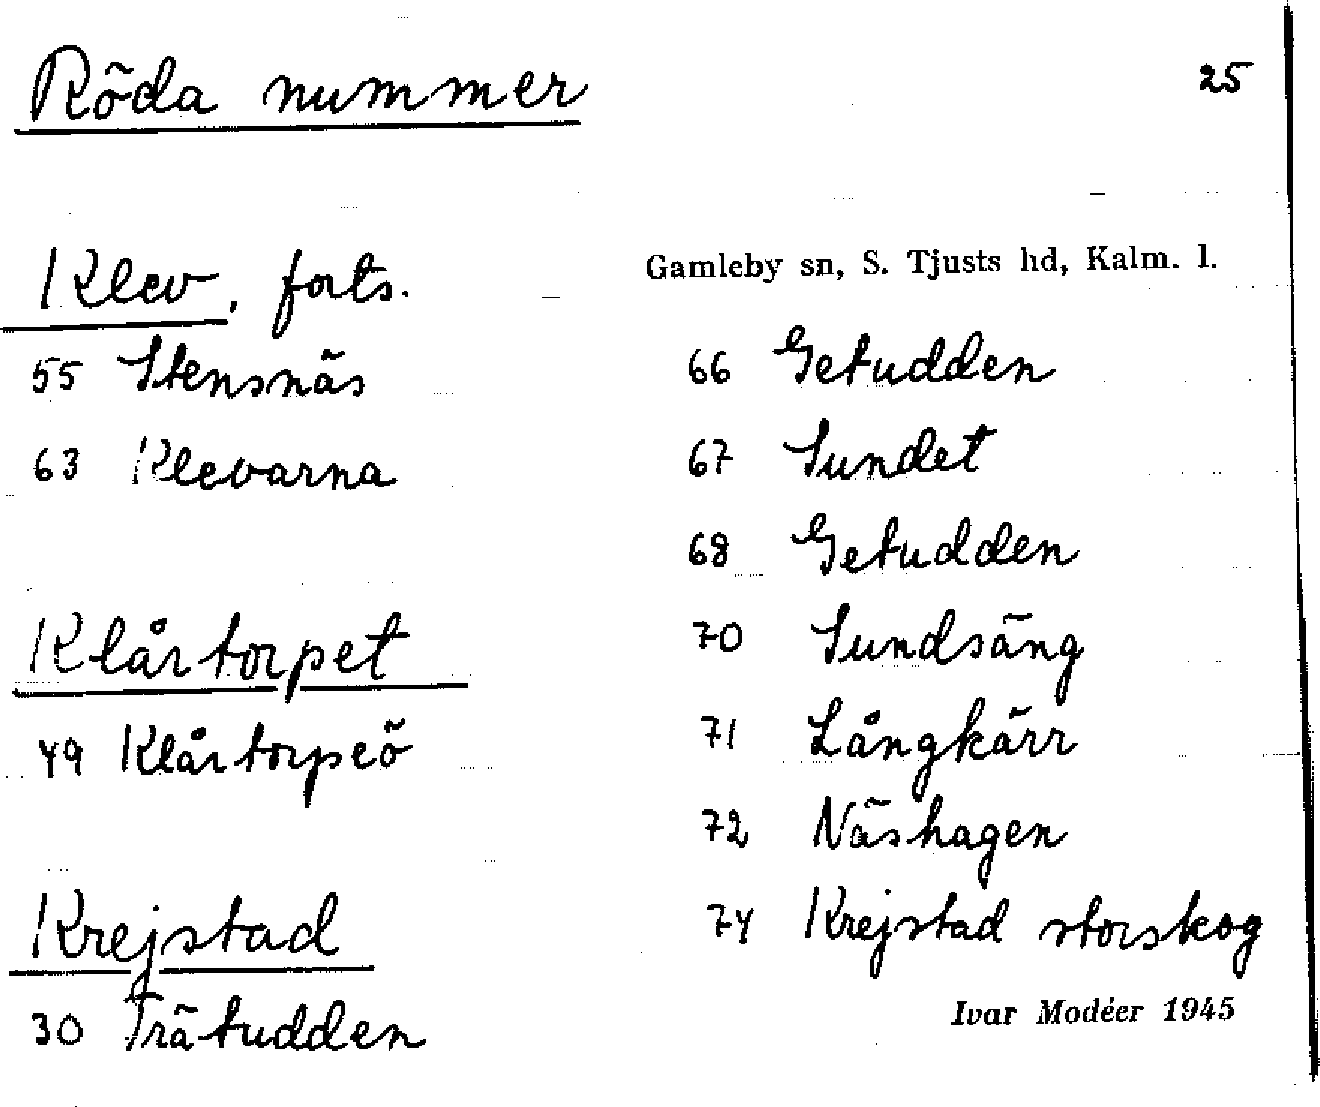 Röda nummer
25
Gamleby sn, S. Tjusts hd, Kalm. l.
Klev, forts.
55 Stensnäs
63 Klevarna
Klårtorpet
49 Klårtorpeö
Krejstad
30 Trätudden
66 Getudden
67 Sundet
68 Getudden
70 Sundsäng
71 Långkärr
72 Näshagen
74 Krejstad storskog
Ivar Modéer 1945